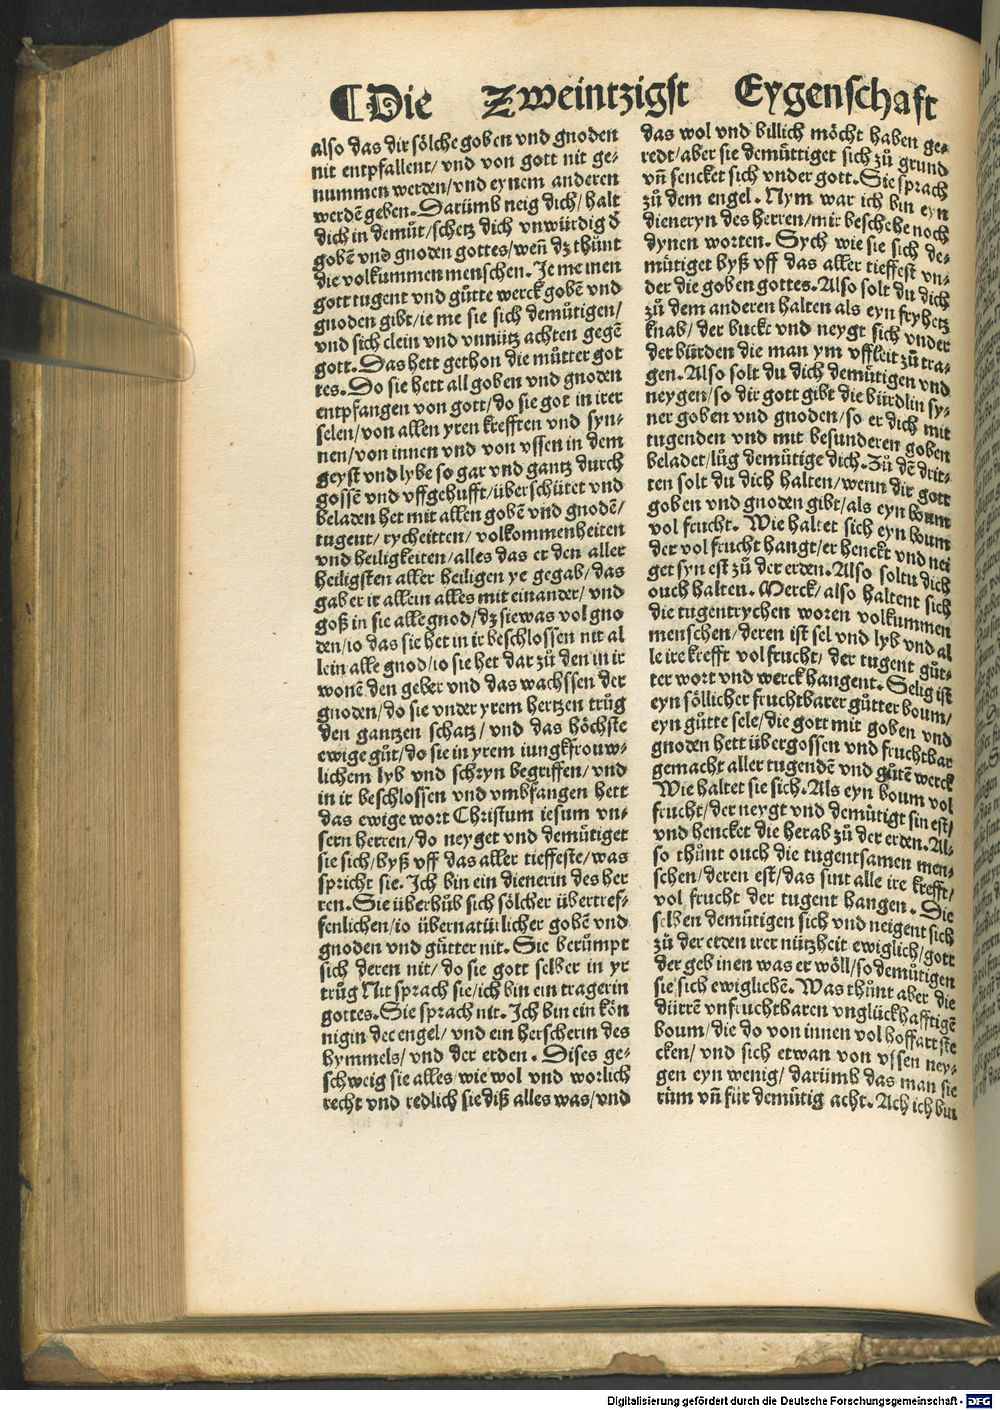 ¶Die Zweintzigst Eygenschaft
also das dir sölche goben vnd gnoden
nit entpfallent/ vnd von gott nit ge⸗
nummen werden/vnd eynem anderen
werdē geben. Darümb neig dich/ halt
dich in demůt/schetz dich vnwürdig d̕
gobē vnd gnoden gottes/weñ dz thůnt
die volkummen menschen. Je me inen
gott tugent vnd gůtte werck gobē vnd
gnoden gibt/ie me sie sich demütigen/
vnd sich clein vnd vnnütz achten gegē
gott. Das hett gethon die můtter got
tes. Do sie hett all goben vnd gnoden
entpfangen von gott/do sie got in irer
selen/von allen yren krefften vnd syn⸗
nen/von innen vnd von vssen in dem
geyst vnd lybe so gar vnd gantz durch
gossē vnd vffgehufft/überschütet vnd
beladen het mit allen gobē vnd gnodē/
tugent/ rycheitten/ volkommenheiten
vnd heiligkeiten/alles das er den aller
heiligsten aller heiligen ye gegab/das
gab er ir allein alles mit einander/ vnd
goß in sie alle gnod/dz sie was vol gno
den/io das sie het in ir beschlossen nit al
lein alle gnod/io sie het dar zů den in ir
wonē den geber vnd das wachssen der
gnoden/do sie vnder yrem hertzen trůg
den gantzen schatz/ vnd das höchste
ewige gůt/do sie in yrem iungkfrouw⸗
lichem lyb vnd schryn begriffen/vnd
in ir beschlossen vnd vmbfangen hett
das ewige wort Christum iesum vn⸗
sern herren/do neyget vnd demütiget
sie sich/byß vff das aller tieffeste/was
spricht sie. Ich bin ein dienerin des her
ren. Sie überhůb sich sölcher übertref⸗
fenlichen/io übernatürlicher gobē vnd
gnoden vnd gütter nit. Sie berůmpt
sich deren nit/do sie gott selber in yr
trůg Nit sprach sie/ich bin ein tragerin
gottes. Sie sprach nit. Ich bin ein kön
nigin der engel/vnd ein herscherin des
hymmels/vnd der erden. Dises ge⸗
schweig sie alles/wie wol vnd worlich
recht vnd redlich sie diß alles was/vnd
das wol vnd billich möcht haben ge⸗
redt/aber sie demüttiget sich zů grund
vñ sencket sich vnder gott. Sie sprach
zů dem engel. Nym war ich bin eyn
dieneryn des herren/mir beschehe noch
dynen worten. Sych wie sie sich de⸗
mütiget byß vff das aller tieffest vn⸗
der die goben gottes. Also solt du dich
zů dem anderen halten als eyn fryhetz
knab/ der buckt vnd neygt sich vnder
der bürden die man ym vffleit zů tra⸗
gen. Also solt du dich demütigen vnd
neygen/so dir gott gibt die bürdlin sy⸗
ner goben vnd gnoden/so er dich mit
tugenden vnd mit besunderen goben
beladet/lůg demütige dich. Zů dē drit⸗
ten solt du dich halten/wenn dir gott
goben vnd gnoden gibt/als eyn boum
vol frucht. Wie haltet sich eyn boum
der vol frucht hangt/er henckt vnd nei
get syn est zů der erden. Also soltu dich
ouch halten. Merck/also haltent sich
die tugentrychen woren volkummen
menschen/deren ist sel vnd lyb vnd al
le ire krefft vol frucht/ der tugent gůt⸗
ter wort vnd werck hangent. Selig ist
eyn söllicher fruchtbarer gůtter boum/
eyn gůtte sele/die gott mit goben vnd
gnoden hett übergossen vnd fruchtbar
gemacht aller tugendē vnd gůtē werck
Wie haltet sie sich. Als eyn boum vol
frucht/der neygt vnd demütigt sin est/
vnd hencket die herab zů der erden. Al⸗
so thůnt ouch die tugentsamen men⸗
schen/deren est/das sint alle ire krefft/
vol frucht der tugent hangen. Die
selben demütigen sich vnd neigent sich
zů der erden irer nützheit ewiglich/gott
der geb inen was er wöll/so demütigen
sie sich ewiglichē. Was thůnt aber die
dürrē vnfruchtbaren vnglückhafftigē
boum/die do von innen vol hoffart ste
cken/ vnd sich etwan von vssen ney⸗
gen eyn wenig/ darümb das man sie
rüm vñ für demütig acht. Ach ich bin
Digitalisierung gefördert durch die Deutsche Forschungsgemeinschaft - DFG